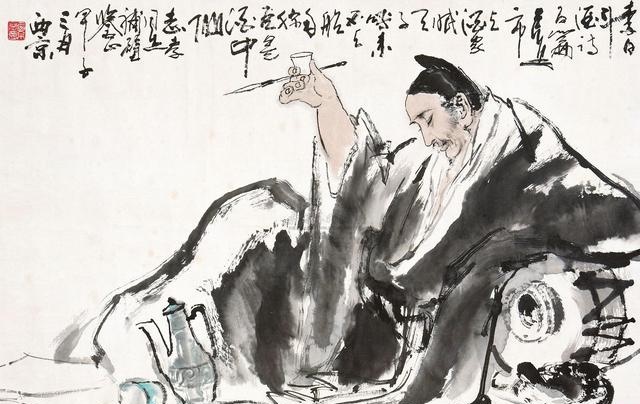 李白
斗
酒诗
百篇
长安
市
上
酒家
眠
天
子
呼来
不上
船
自
称
臣是
酒中
仙
志孝
同志
补壁
鉴正
甲子
三月
西京